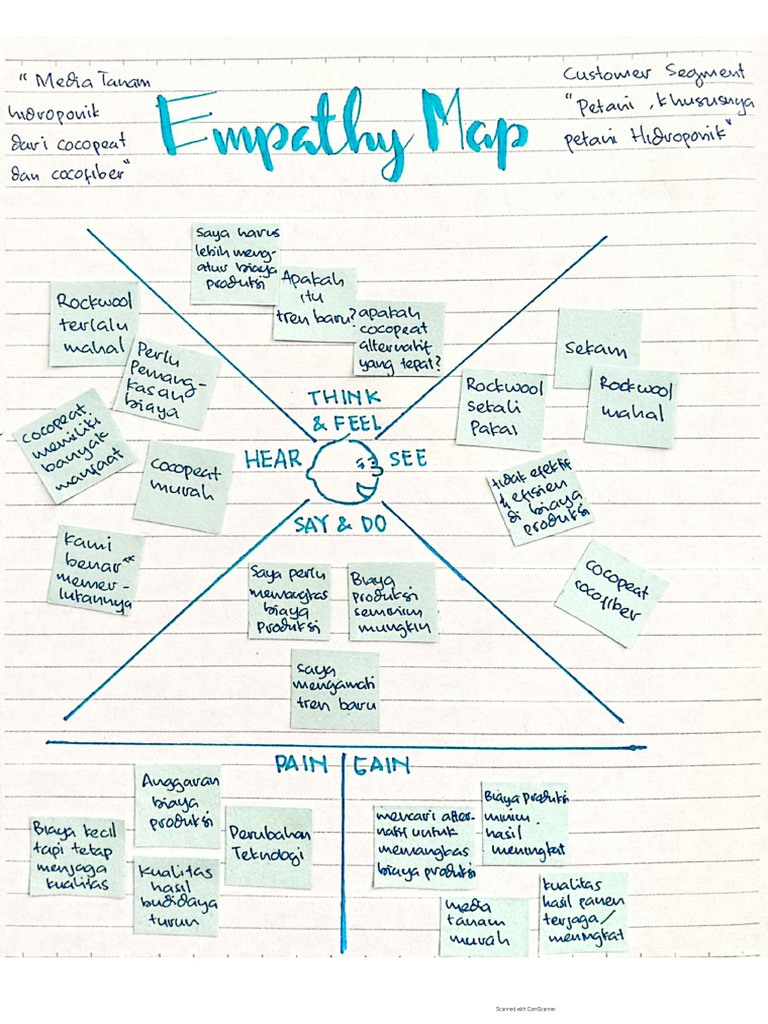 "Media Tanam
hidroponik
dari cocopeat
dan cocofiber"
Empathy Map
Customer Segment
"Petani, khususnya
petani Hidroponik"
Saya harus
lebih meng-
atur biaya
produksi
Apakah
itu
tren baru?
apakah
cocopeat
alternatif
yang tepat?
THINK
& FEEL
Rockwool
terlalu
mahal
Perlu
Pemang-
kasan
biaya
cocopeat
memiliki
banyak
manfaat
Cocopeat
murah
Kami
benar"
memer-
lukannya
HEAR
SEE
sekam
Rockwool
sekali
Pakai
Rockwool
mahal
tidak efektif
& efisien
di biaya
produksi
cocopeat
cocofiber
SAY & DO
Saya perlu
memangkas
biaya
produksi
Biaya
produksi
seminim
mungkin
saya
mengamati
tren baru
PAIN
Biaya kecil
tapi tetap
menjaga
kualitas
Anggaran
biaya
produksi
Kualitas
hasil
budidaya
turun
Perubahan
Teknologi
GAIN
mencari alter-
natif untuk
memangkas
biaya produksi
Biaya produksi
minim.
hasil
meningkat
media
tanam
murah
kualitas
hasil panen
terjaga/
meningkat
Scanned with CamScanner